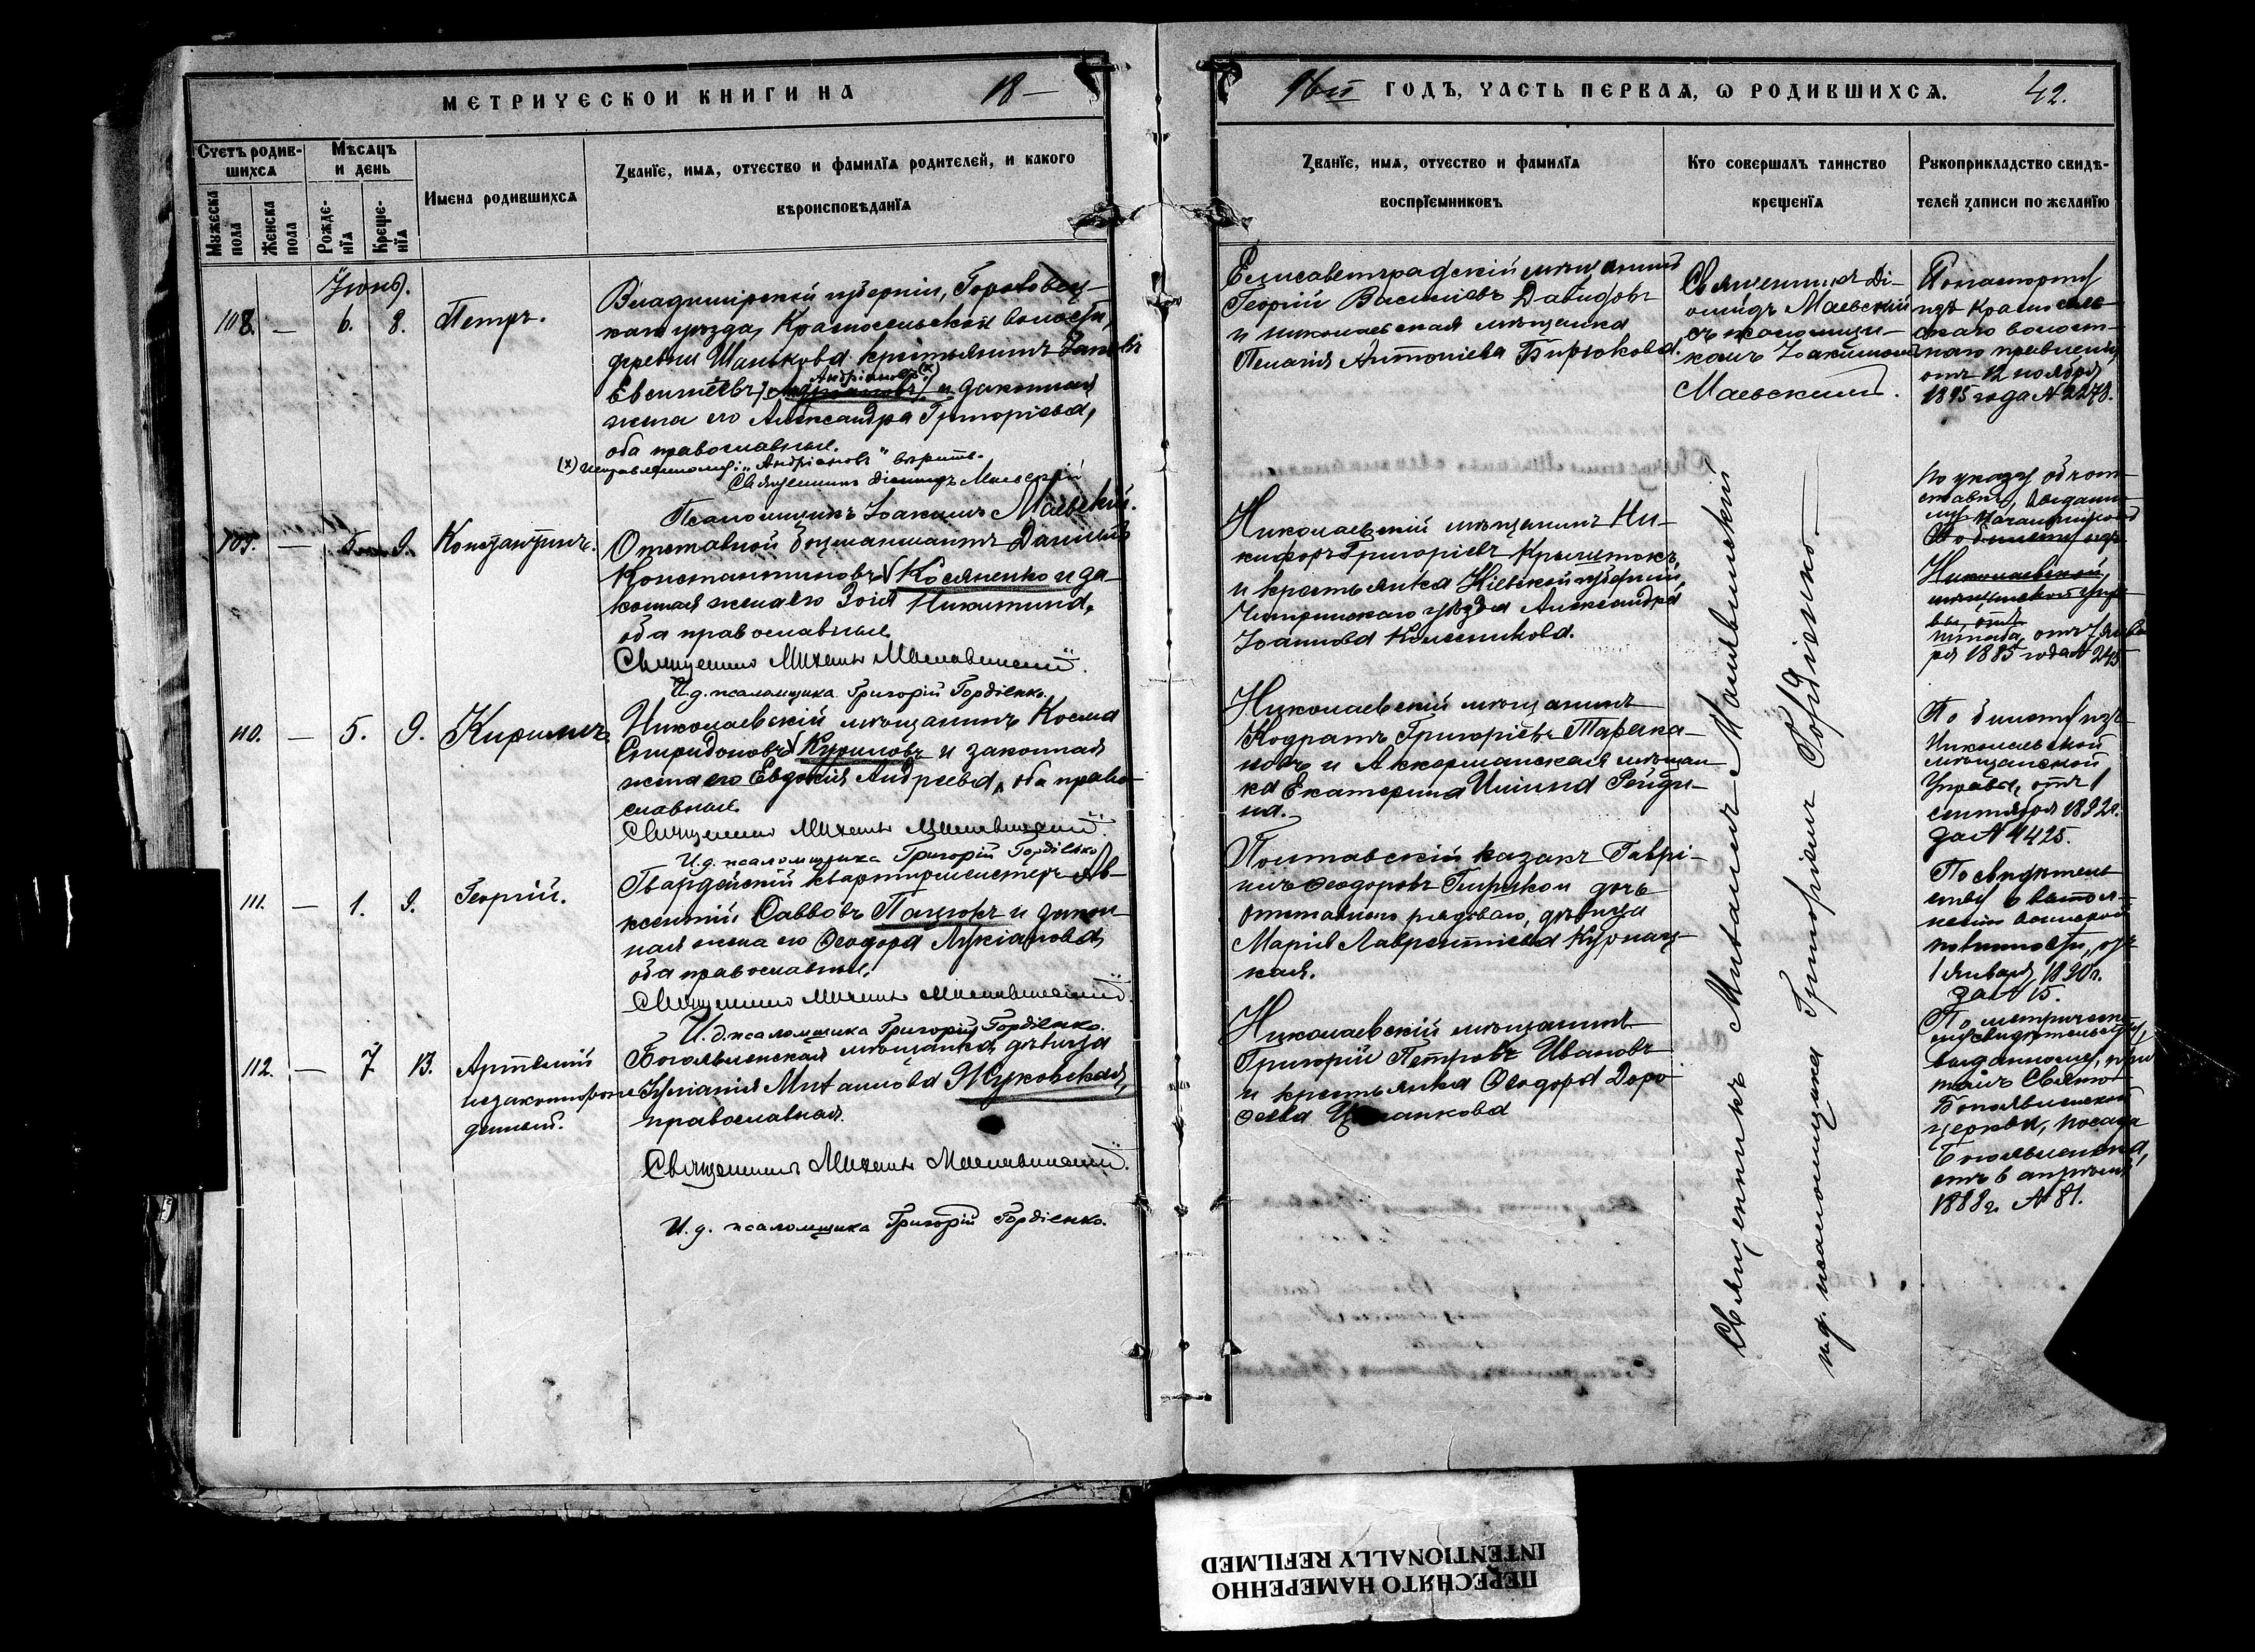 МЕТРИЧЕСКОЙ КНИГИ НА 18—
96й ГОДЪ, ЧАСТЬ ПЕРВАЯ, Ѡ РОДИВШИХСЯ. 42.
Счетъ родив-
шихся
Мужеска пола
Женска пола
Мѣсяцъ
и день
Рожде-
нія
Креще-
нія
Имена родившихся
Званіе, имя, отчество и фамилія родителей, и какого
вѣроисповѣданія
Званіе, имя, отчество и фамилія
воспріемниковъ
Кто совершалъ таинство
крещенія
Рукоприкладство свидѣ-
телей записи по желанію
Іюнь.
108. — 6. 8. Петръ.
Владимірской губерніи, Гороховец-
каго уѣзда, Красносельской волости,
деревни Шанькова крестьянинъ
Андріановъ (х)
и законная
жена его Александра Григоріева,
оба православные.
(х) "Андріановъ" вѣрить.
Священникъ Діомидъ Маевскій
Псаломщикъ Іоакимъ Маевскій.
Елисаветградскій мѣщанинъ
Георгій Василіевъ Давидовъ
и николаевская мѣщанка
Пелагія Антоніева Бирюкова.
Священникъ Ді-
омидъ Маевскій
съ псаломщи-
комъ Іоакимомъ
Маевскимъ.
По паспорту
изъ Красносель-
скаго волост-
наго правленія
отъ 12 ноября
1895 года № 2278.
109. — 5. 9. Константинъ.
Отставной боцманматъ Даніилъ
Константиновъ Косяненко и за-
конная жена его Зоія Никитина,
оба православные.
Священникъ Михаилъ
И. д. псаломщика Григорій Гордіенко.
Николаевскій мѣщанинъ Ни-
кифоръ Григоріевъ
и крестьянка Кіевской губерніи,
Чигринскаго уѣзда Александра
Іоаннова Колесникова.
По указу объ от-
ставкѣ, выданно-
му
Николаевской
мѣщанской упра-
вы, отъ
штаба, отъ 7 янва-
ря 1885 года № 245
110. — 5. 9. Кириллъ.
Николаевскій мѣщанинъ Косма
Спиридоновъ Куриловъ и законная
жена его Евдокія Андреева, оба право-
славные.
Священникъ Михаилъ
И. д. псаломщика Григорій Гордіенко
Николаевскій мѣщанинъ
Кодратъ Григоріевъ Тарака-
новъ и Аккерманская мѣщан-
ка Екатерина Ильина Рейди-
на.
По билету изъ
Николаевской
мѣщанской
Управы, отъ 1
сентября 1892 г.
за № 4425.
111. — 1. 9. Георгій.
Гвардейскій квартирмейстеръ Ав-
ксентій Саввовъ Пацюкъ и закон-
ная жена его Ѳеодора Лукіанова,
оба православные.
Священникъ Михаилъ
И. д. псаломщика Григорій Гордіенко.
Полтавскій казакъ Гаврі-
илъ Ѳеодоровъ и дочь
отставнаго рядоваго, дѣвица
Марія Лаврентіева Курнац-
кая.
По свидѣтель-
ству о выпол-
неніи воинской
повинности, отъ
1 января 1890 г.
за № 15.
112. — 7. 13. Артемій
незаконнорож-
денный.
Богоявленская мѣщанка, дѣвица
Іуліанія Михаилова Жуковская,
православная.
Священникъ Михаилъ
И. д. псаломщика Григорій Гордіенко.
Николаевскій мѣщанинъ
Григорій Петровъ Ивановъ
и крестьянка Ѳеодора Доро-
ѳеева
По метрическо-
му свидѣтельству,
выданному
Свято-
Богоявленской
церкви, посада
Богоявленска,
отъ 6 апрѣля
1888 г. № 81.
Священникъ Михаилъ
и. д. псаломщика Григорій Гордіенко.
ПЕРЕСНЯТО НАМЕРЕННО
INTENTIONALLY REFILMED